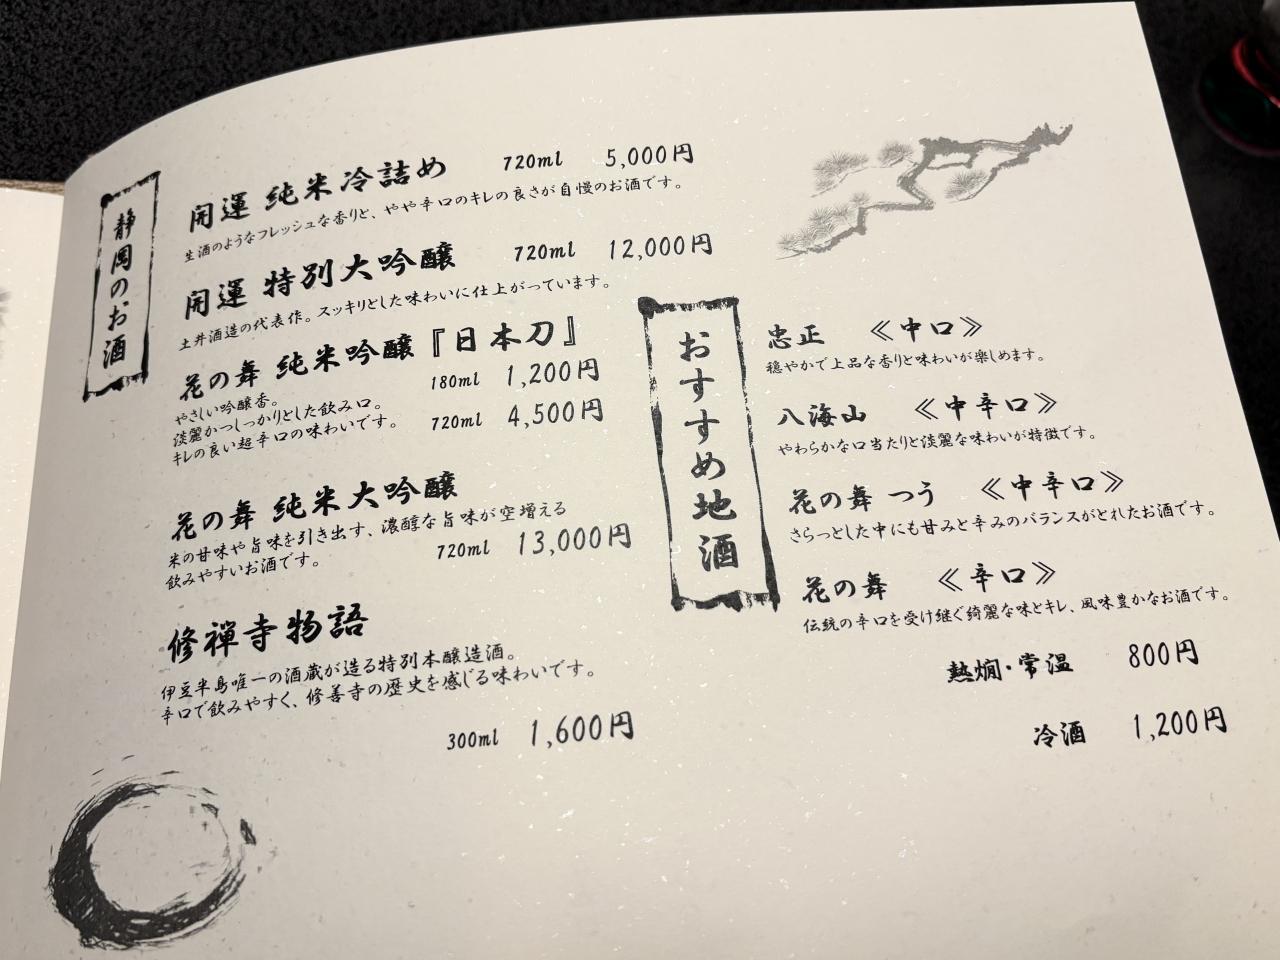 静岡のお酒
開運 純米冷詰め 720ml 5,000円
生酒のようなフレッシュな香りと、やや辛口のキレの良さが自慢のお酒です。
開運 特別大吟醸 720ml 12,000円
土井酒造の代表作。スッキリとした味わいに仕上がっています。
花の舞 純米吟醸『日本刀』
180ml 1,200円
やさしい吟醸香。
淡麗かつしっかりとした飲み口。
キレの良い超辛口の味わいです。
720ml 4,500円
花の舞 純米大吟醸
米の甘味や旨味を引き出す、濃醇な旨味が空増える
飲みやすいお酒です。
720ml 13,000円
修禅寺物語
伊豆半島唯一の酒蔵が造る特別本醸造酒。
辛口で飲みやすく、修善寺の歴史を感じる味わいです。
300ml 1,600円
おすすめ地酒
忠正 《中口》
穏やかで上品な香りと味わいが楽しめます。
八海山 《中辛口》
やわらかな口当たりと淡麗な味わいが特徴です。
花の舞 つう 《中辛口》
さらっとした中にも甘みと辛みのバランスがとれたお酒です。
花の舞 《辛口》
伝統の辛口を受け継ぐ綺麗な味とキレ、風味豊かなお酒です。
熱燗・常温 800円
冷酒 1,200円